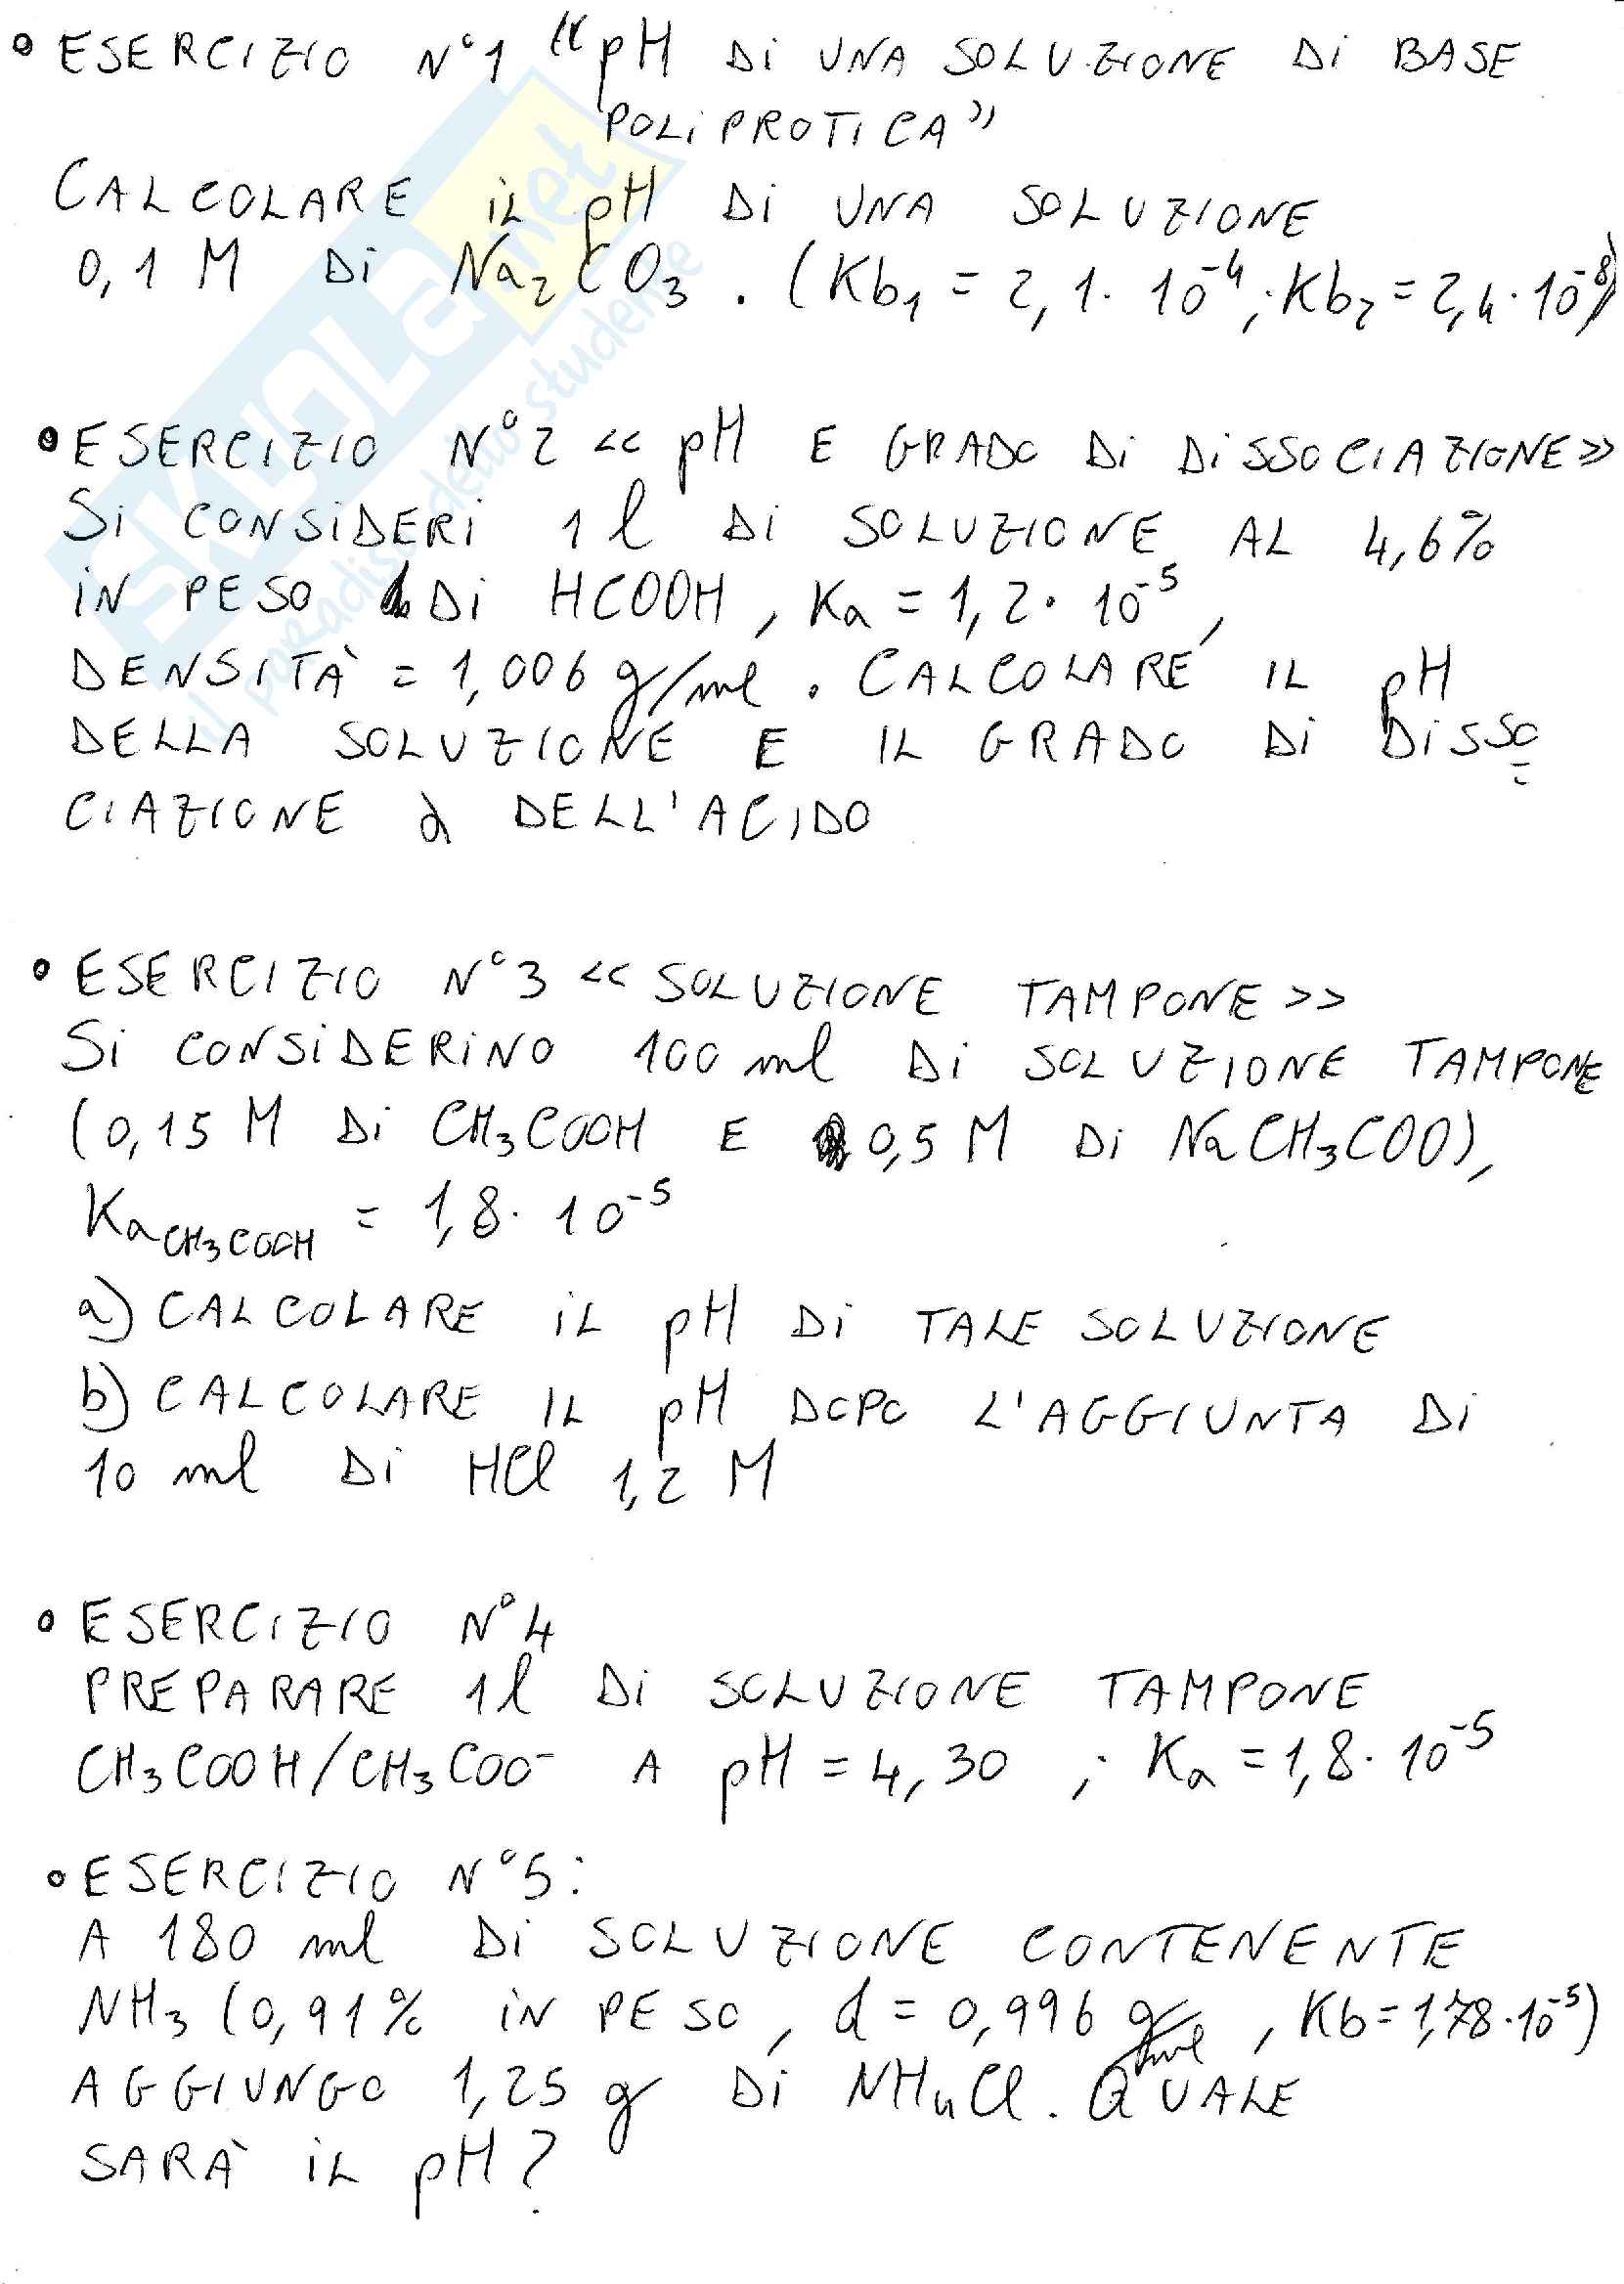 • ESERCIZIO N°1 "pH Di UNA SOLUZIONE Di BASE
POLiPROTICA"
CALCOLARE iL pH Di UNA SOLUZIONE
0,1 M Di Na₂CO₃. (Kb₁ = 2,1·10⁻⁴; Kb₂ = 2,4·10⁻⁸)
• ESERCIZIO N°2 << pH E GRADO Di DiSSOCIAZIONE>>
Si CONSiDERi 1 l Di SOLUZIONE AL 4,6%
iN PESO Di HCOOH, Ka = 1,2·10⁻⁵,
DENSITÀ = 1,006 g/ml. CALCOLARE IL pH
DELLA SOLUZIONE E IL GRADO Di DiSSO
CIAZIONE α DELL'ACIDO
• ESERCIZIO N°3 << SOLUZIONE TAMPONE>>
Si CONSiDERiNO 100 ml Di SOLUZIONE TAMPONE
(0,15 M Di CH₃COOH E 0,5 M Di NaCH₃COO),
Ka CH₃COOH = 1,8·10⁻⁵
a) CALCOLARE iL pH Di TALE SOLUZIONE
b) CALCOLARE IL pH DOPO L'AGGIUNTA Di
10 ml Di HCl 1,2 M
• ESERCIZIO N°4
PREPARARE 1l Di SOLUZIONE TAMPONE
CH₃COOH/CH₃COO⁻ A pH = 4,30 ; Ka = 1,8·10⁻⁵
• ESERCIZIO N°5:
A 180 ml Di SOLUZIONE CONTENENTE
NH₃ (0,91% iN PESO, d = 0,996 g/ml, Kb = 1,78·10⁻⁵)
AGGIUNGO 1,25 g Di NH₄Cl. QUALE
SARÀ iL pH?
SKUOLA.net
il paradiso dello studente